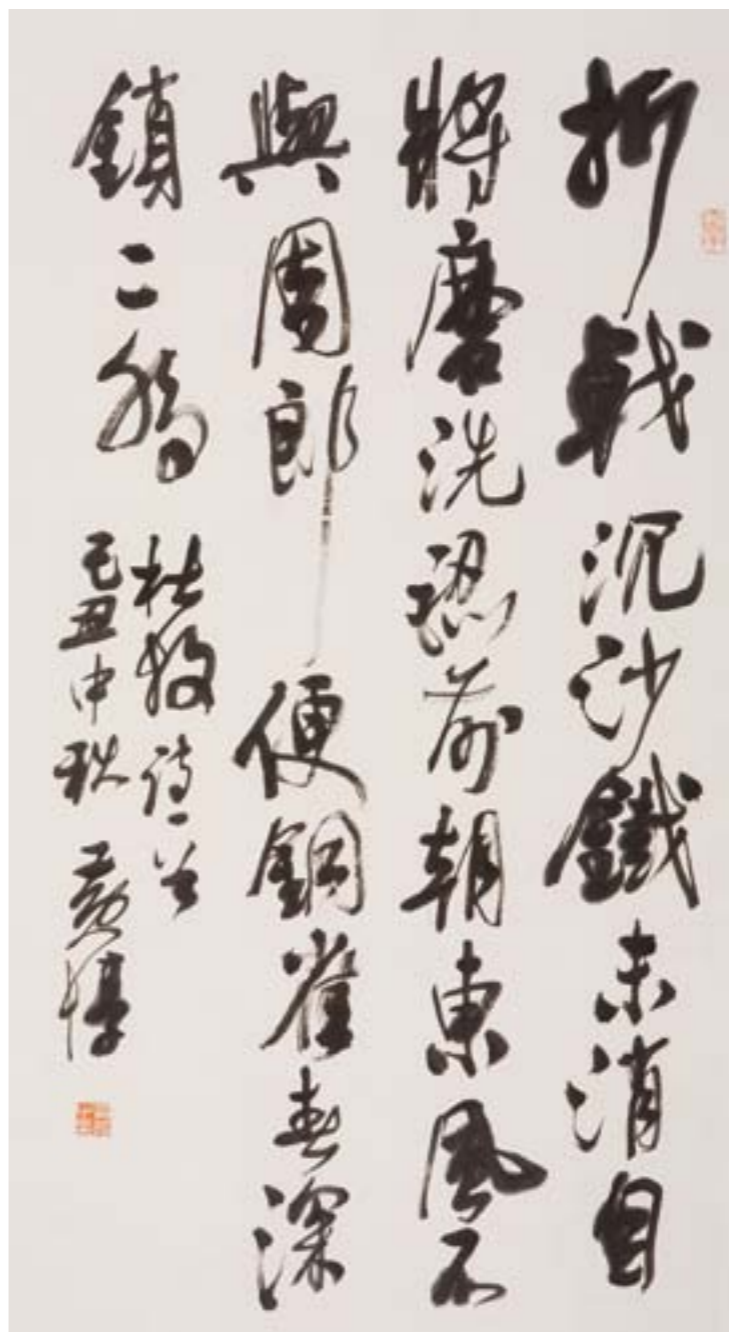 折戟沉沙鐵未消自
將磨洗認前朝東風不
與周郎便銅雀春深
鎖二喬
杜牧詩一首
己丑中秋 黃惇